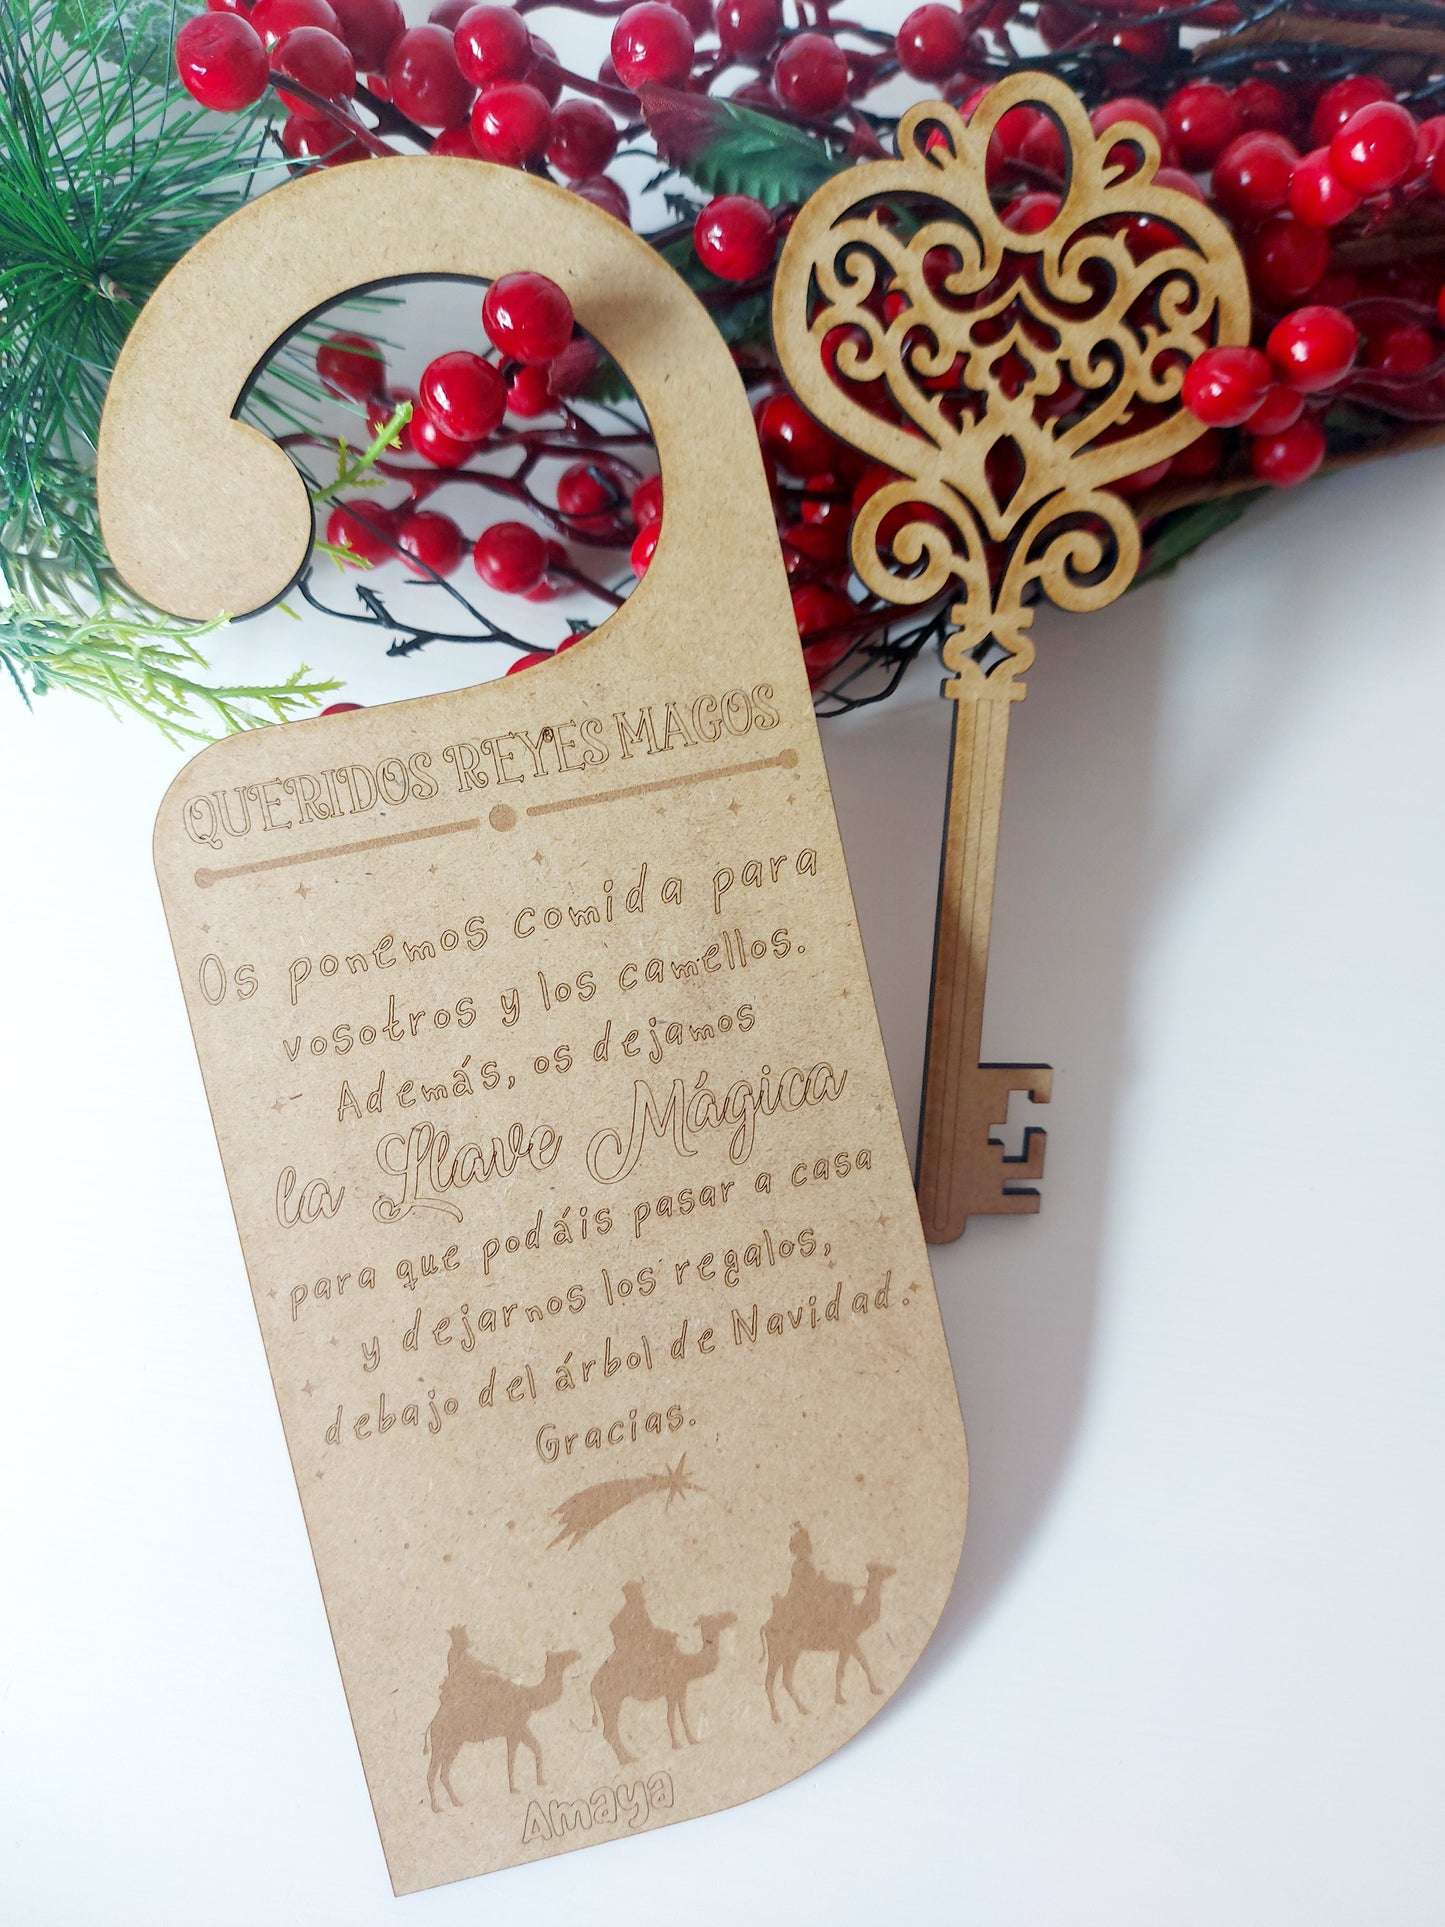 QUERIDOS REYES MAGOS
Os ponemos comida para
vosotros y los camellos.
Además, os dejamos
la Llave Mágica
para que podáis pasar a casa
y dejarnos los regalos,
debajo del árbol de Navidad.
Gracias.
Amaya